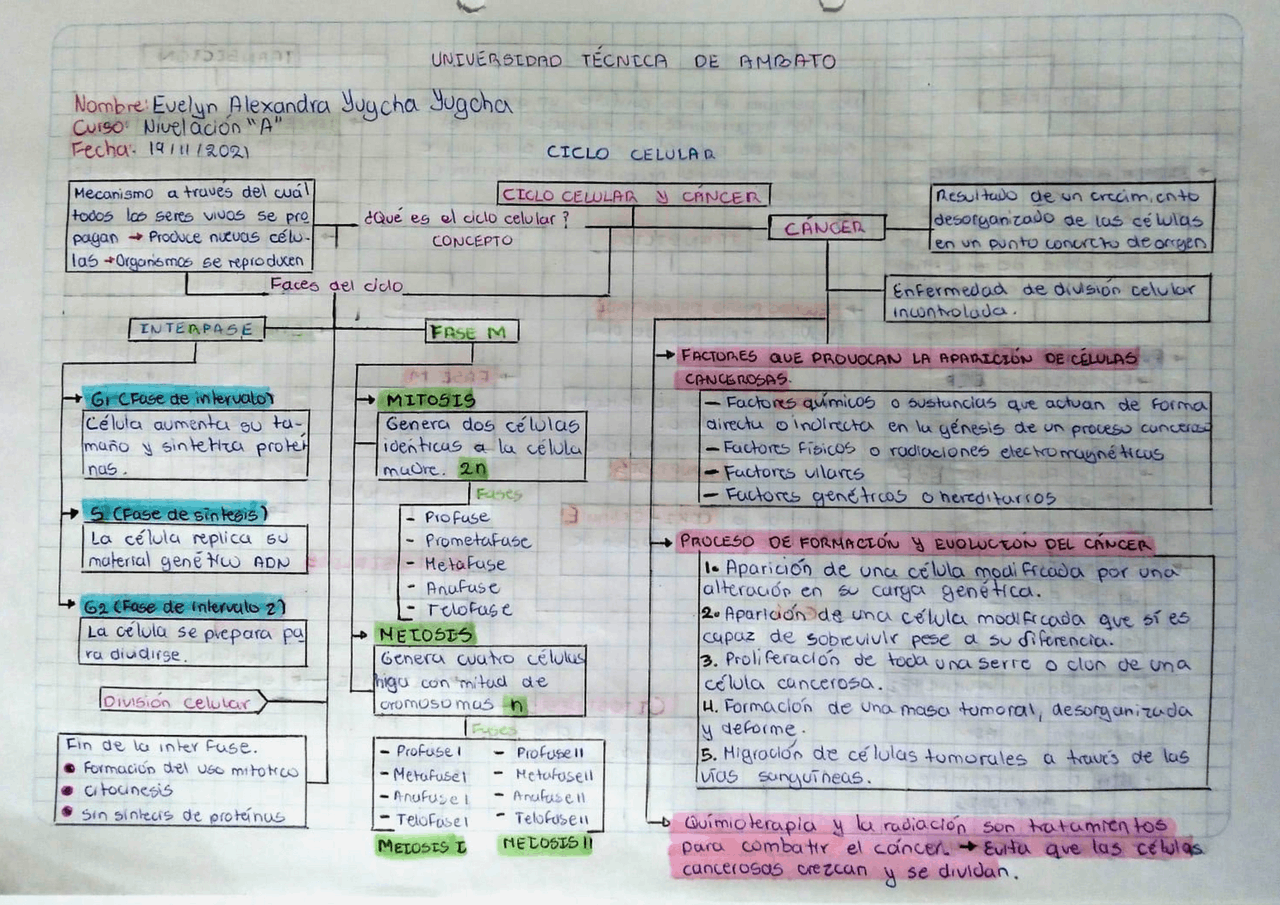 UNIVERSIDAD TÉCNICA DE AMBATO
Nombre: Evelyn Alexandra Yugcha Yugcha
Curso: Nivelación "A"
Fecha: 19/11/2021
CICLO CELULAR
CICLO CELULAR Y CÁNCER
Mecanismo a través del cuál
todos los seres vivos se pro
pagan → Produce nuevas célu-
las → Organismos se reproducen
¿Qué es el ciclo celular?
CONCEPTO
Faces del ciclo
INTERFASE
G1 (Fase de intervalo)
Célula aumenta su ta-
maño y sintetiza proteí
nas.
S (Fase de síntesis)
La célula replica su
material genético ADN
G2 (Fase de intervalo 2)
La célula se prepara pa
ra dividirse.
División celular
Fin de la inter fase.
• Formación del uso mitotico
• citocinesis
• sin síntecis de proteínas
FASE M
MITOSIS
Genera dos células
identicas a la célula
madre. 2n
Fases
- Profase
- Prometafase
- Metafase
- Anafase
- Telofase
MEIOSIS
Genera cuatro células
higa con mitad de
cromosomas n
Fases
- Profase I - Profase II
- Metafase I - Metafase II
- Anafase I - Anafase II
- Telofase I - Telofase II
MEIOSIS I MEIOSIS II
CÁNCER
Resultado de un crecimiento
desorganizado de las células
en un punto concreto de origen
Enfermedad de división celular
incontrolada.
→ FACTORES QUE PROVOCAN LA APARICIÓN DE CÉLULAS
CANCEROSAS.
- Factores químicos o sustancias que actuan de forma
directa o indirecta en la génesis de un proceso canceroso
- Factores Físicos o radiaciones electromagnéticas
- Factores vilares
- Factores genéticos o hereditarios
→ PROCESO DE FORMACIÓN Y EVOLUCIÓN DEL CÁNCER
1. Aparición de una célula modificada por una
alteración en su carga genética.
2. Aparición de una célula modificada que sí es
capaz de sobrevivir pese a su diferencia.
3. Proliferación de toda una serie o clon de una
célula cancerosa.
4. Formación de una masa tumoral, desorganizada
y deforme.
5. Migración de células tumorales a través de las
vías sanguíneas.
→ Quimioterapia y la radiación son tratamientos
para combatir el cáncer → Evita que las células
cancerosas crezcan y se dividan.